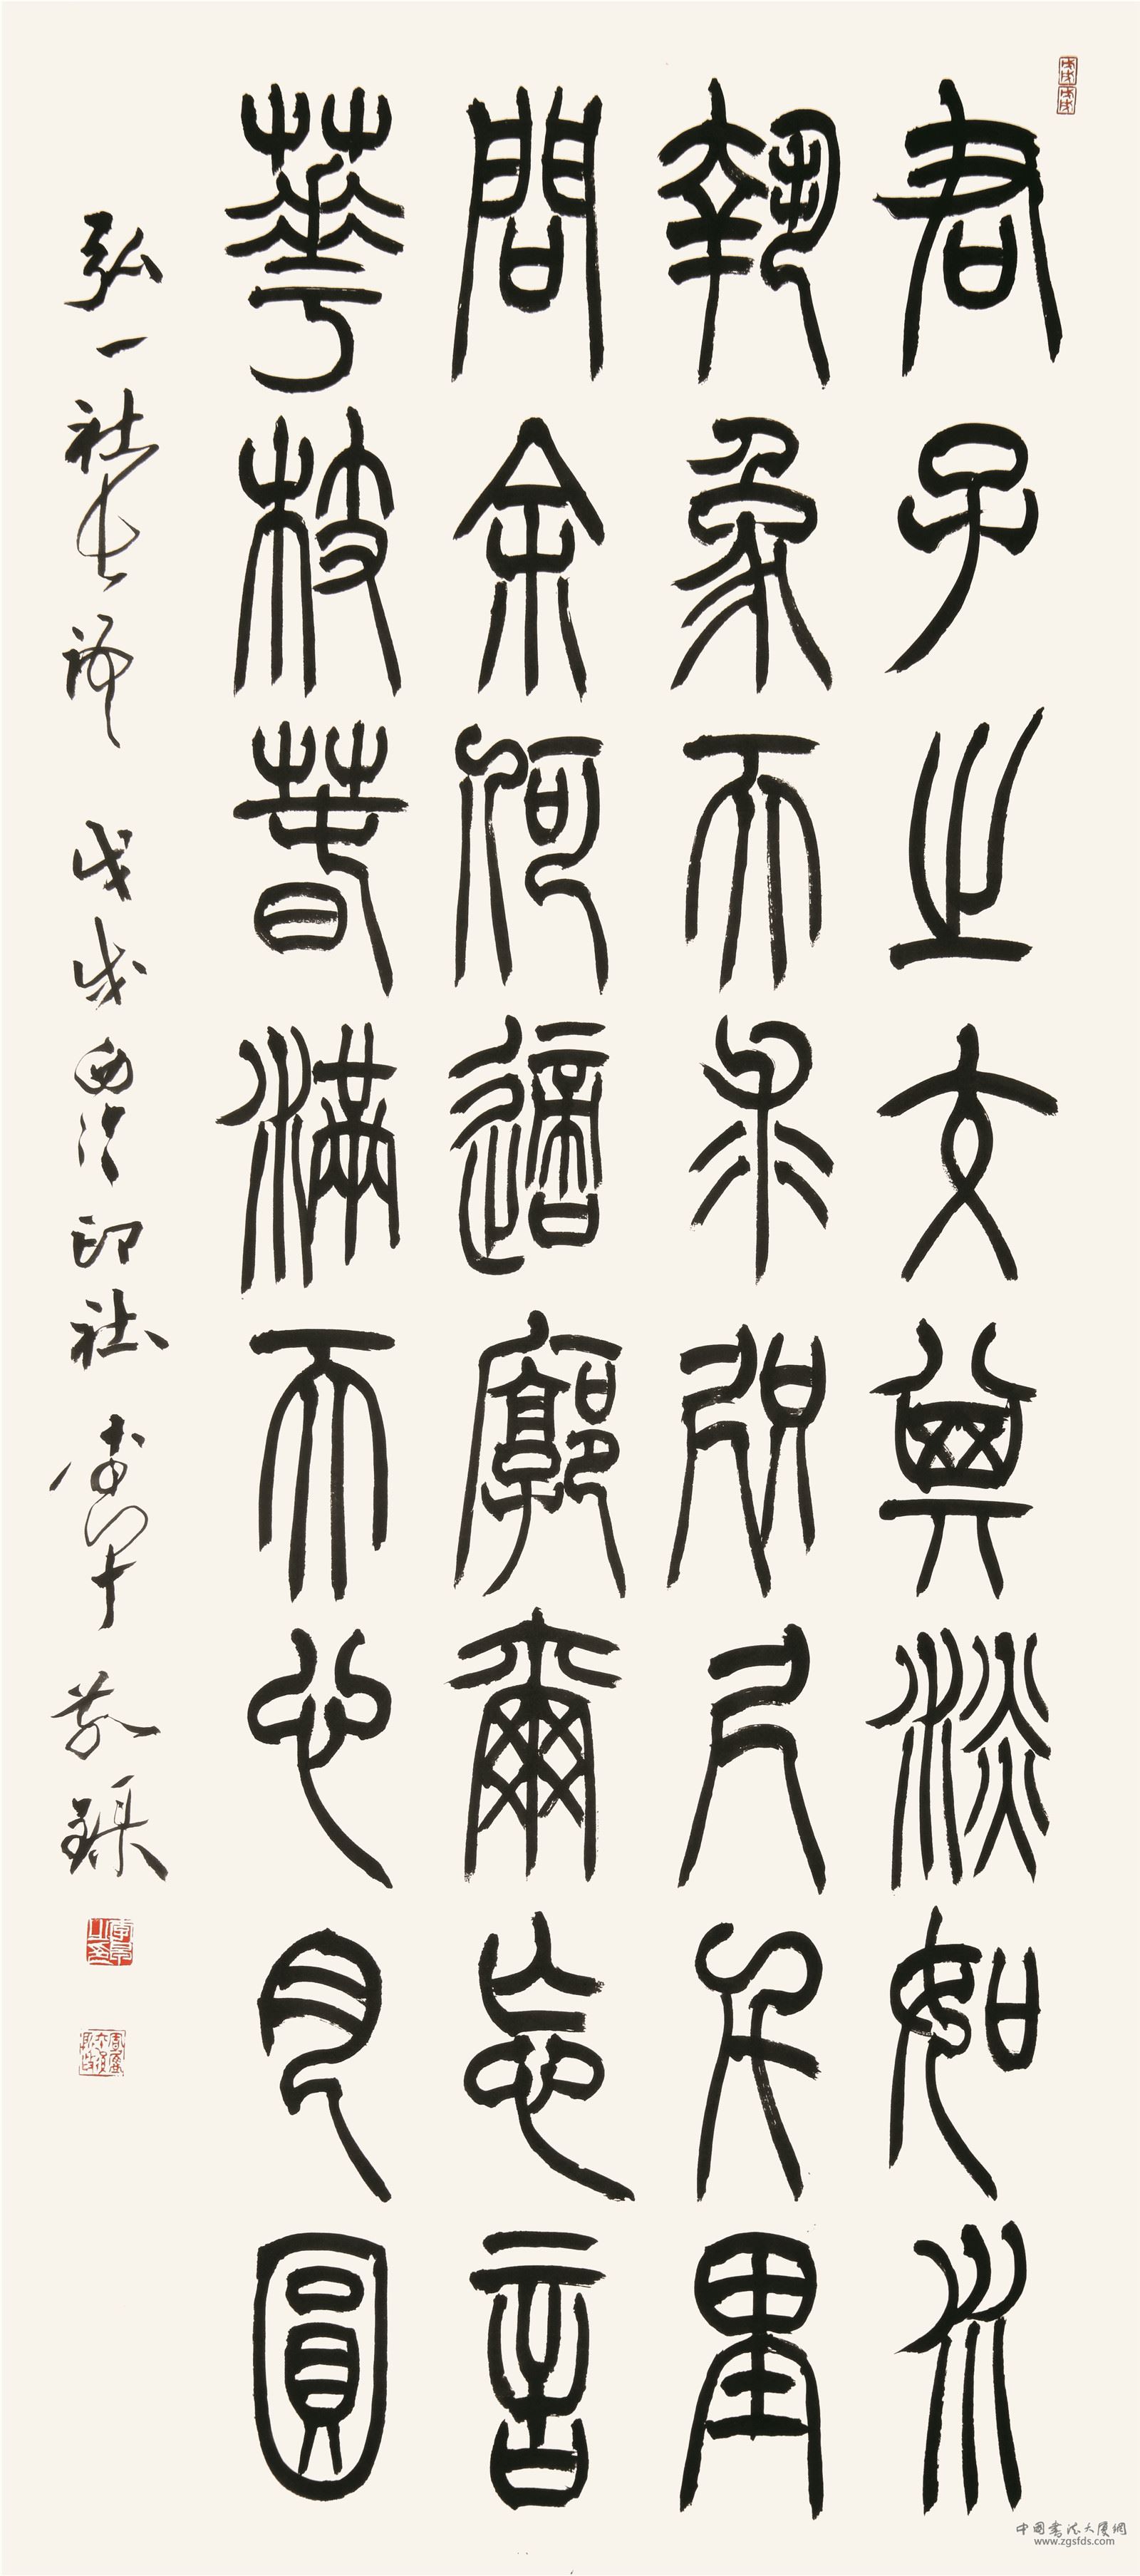 君子之交其淡如水
執象而求咫尺千里
問余何適廓爾忘言
華枝春滿天心月圓
弘一社長 戊戌西泠印社 敬録
中國書法大厦網
www.zgsfds.com